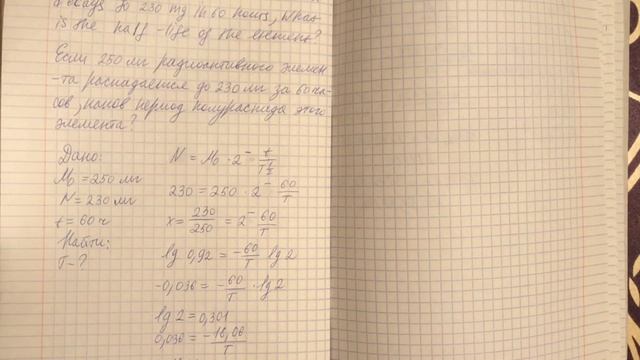 decays to 230 mg in 60 hours, what
is the half-life of the element?
Если 250 мг радиоактивного элемен
-та распадается до 230 мг за 60 ча-
сов, каков период полураспада этого
элемента?
Дано:
M₀ = 250 мг
N = 230 мг
t = 60 ч
Найти:
T - ?
N = M₀ · 2^-
230 = 250 · 2^- 60/T
x = 230/250 = 2^- 60/T
lg 0,92 = - 60/T lg 2
-0,036 = - 60/T · lg 2
lg 2 = 0,301
0,036 = -18,06/T